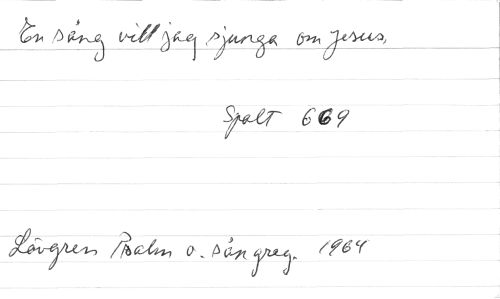 En sång vill jag sjunga om Jesus,
Spalt 669
Lövgren Psalm o. sångreg. 1964